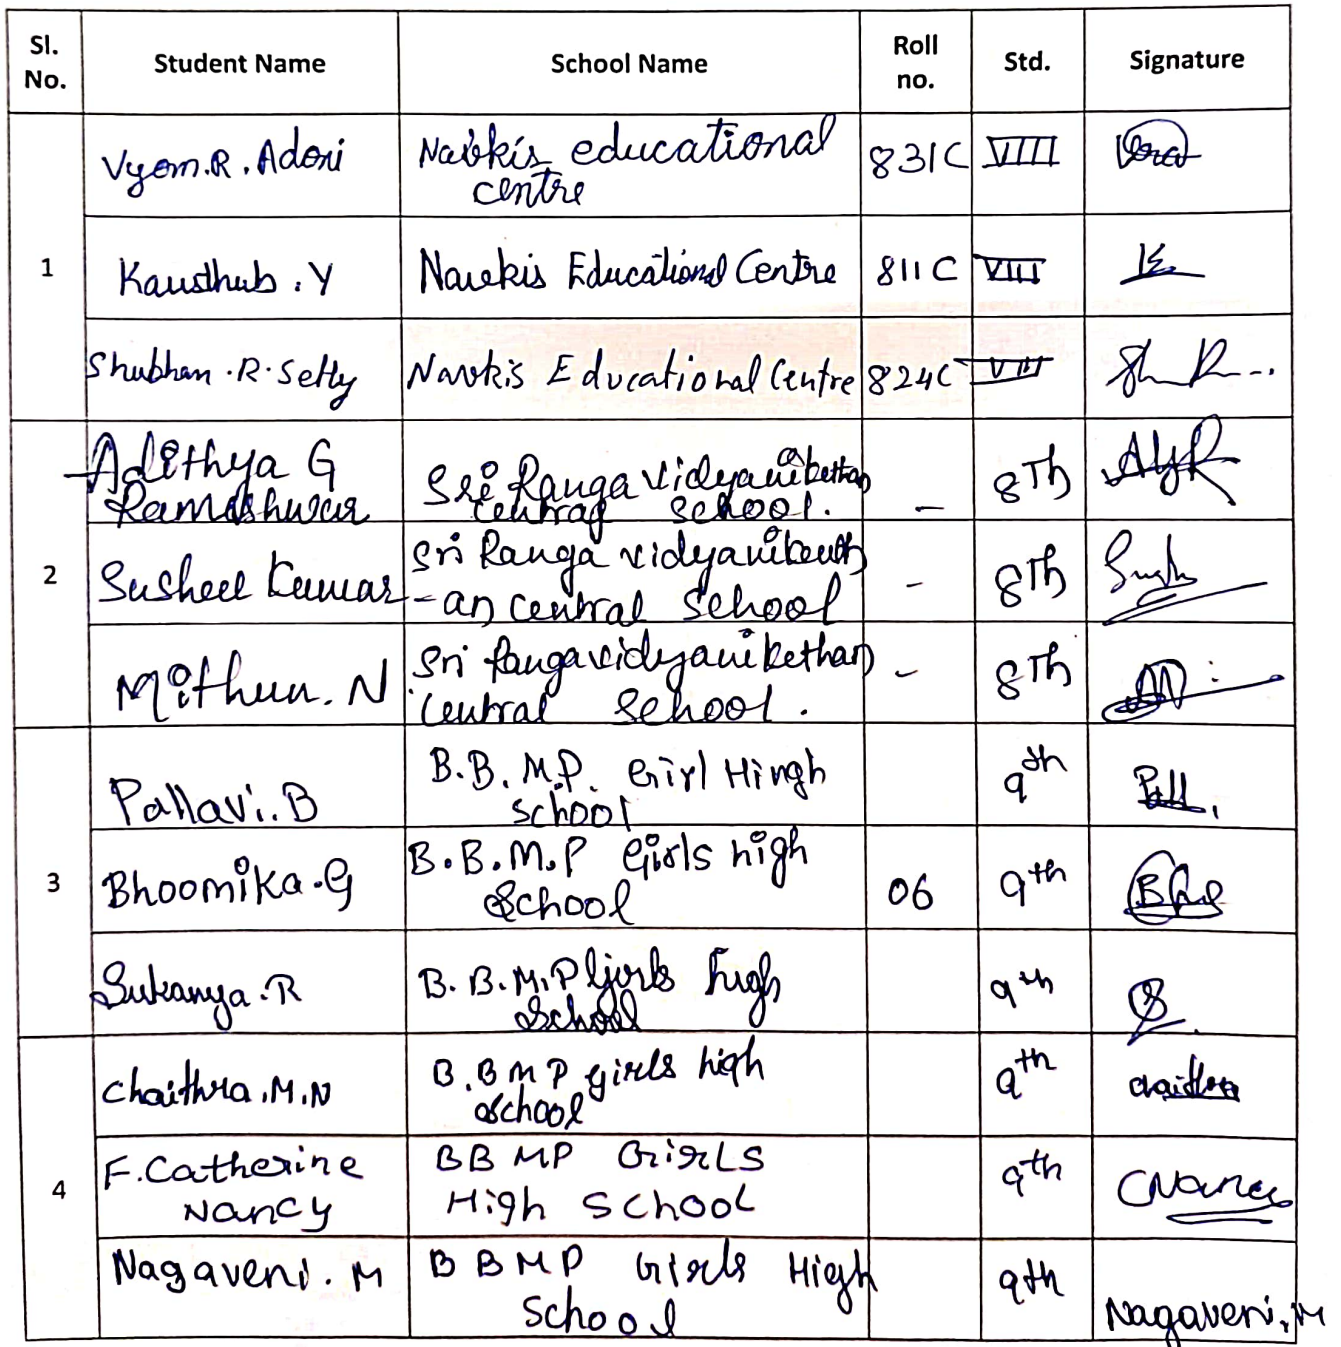 Sl. No. Student Name School Name Roll no. Std. Signature
1
Vyom.R. Adoni Navkis educational centre 831C VIII
Kausthub. Y Navkis Educational Centre 811C VIII
Shubhan.R.Setty Navkis Educational Centre 824C VIII
2
Adithya G Rameshwar Sri Ranga Vidyanikethan central School. - 8Th
Susheel Kumar Sri Ranga vidyanikeuth-an central School - 8Th
Mithun. N Sri Rangavidyanikethan Central School. - 8Th
3
Pallavi. B B.B.M.P. Girl Hingh School 9th Pall.
Bhoomika.G B.B.M.P Girls high School 06 9th
Sukanya.R B.B.M.P Girls high School 9th
4
Chaithra.M.N B.BMP girls high school 9th chaithra
F.Catherine Nancy BBMP GirLS High School 9th CNancy
Nagaveni. M BBMP Girls High School 9th Nagaveni.M